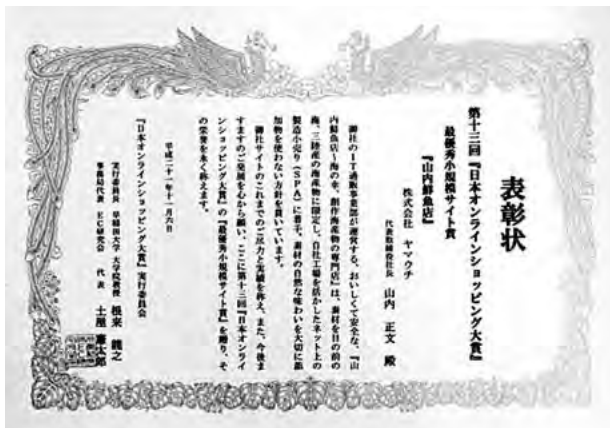 表彰状
第十三回『日本オンラインショッピング大賞』
最優秀小規模サイト賞
『山内鮮魚店』
株式会社 ヤマウチ
代表取締役社長 山内 正文 殿
御社のIT通販事業部が運営する、おいしくて安全な、『山
内鮮魚店~海の幸、創作海産物の専門店』は、素材を目の前の
海、三陸産の海産物に限定し、自社工場を活かしたネット上の
製造小売り(SPA)に着手、素材の自然な味わいを大切に添
加物を使わない方針を貫いています。
御社サイトのこれまでのご尽力と実績を称え、また、今後ま
すますのご発展を心から願い、ここに第十三回『日本オンライ
ンショッピング大賞』の『最優秀小規模サイト賞』を贈り、そ
の栄誉を永く称えます。
平成二十一年十一月六日
『日本オンラインショッピング大賞』実行委員会
実行委員長 早稲田大学 大学院教授 根来 龍之
事務局代表 EC研究会 代表 土屋 憲太郎